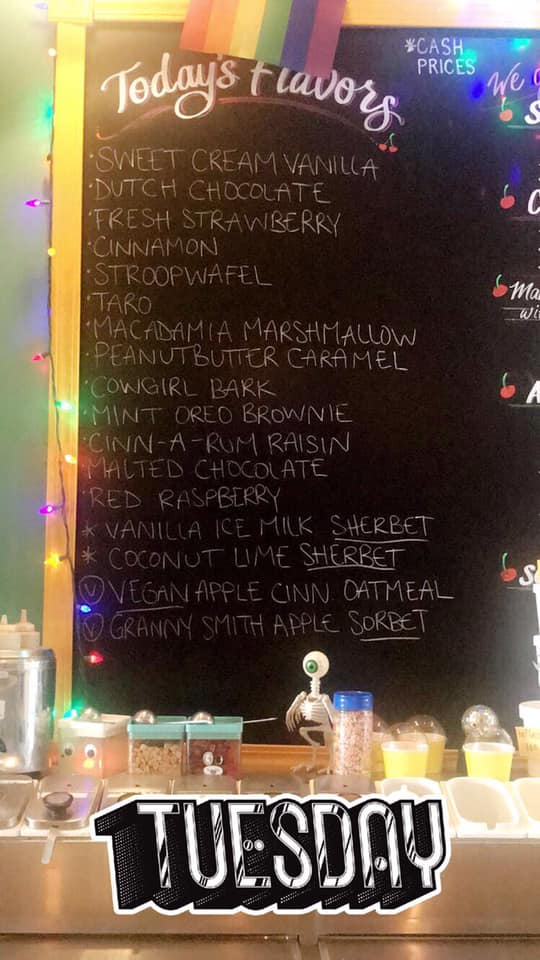 Today's Flavors
*CASH
PRICES
We
· SWEET CREAM VANILLA
· DUTCH CHOCOLATE
· FRESH STRAWBERRY
· CINNAMON
· STROOPWAFEL
· TARO
· MACADAMIA MARSHMALLOW
· PEANUTBUTTER CARAMEL
· COWGIRL BARK
· MINT OREO BROWNIE
· CINN-A-RUM RAISIN
· MALTED CHOCOLATE
· RED RASPBERRY
* VANILLA ICE MILK SHERBET
* COCONUT LIME SHERBET
Ⓥ VEGAN APPLE CINN. OATMEAL
Ⓥ GRANNY SMITH APPLE SORBET
TUESDAY